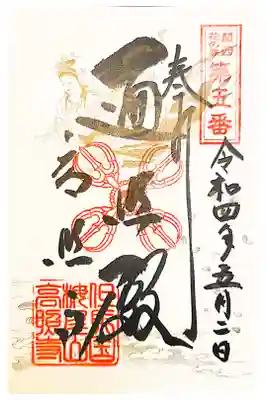 関西
花の寺
第五番
令和四年五月二日
奉拝
遍照殿
高照寺
但馬国
樽見山
高照寺